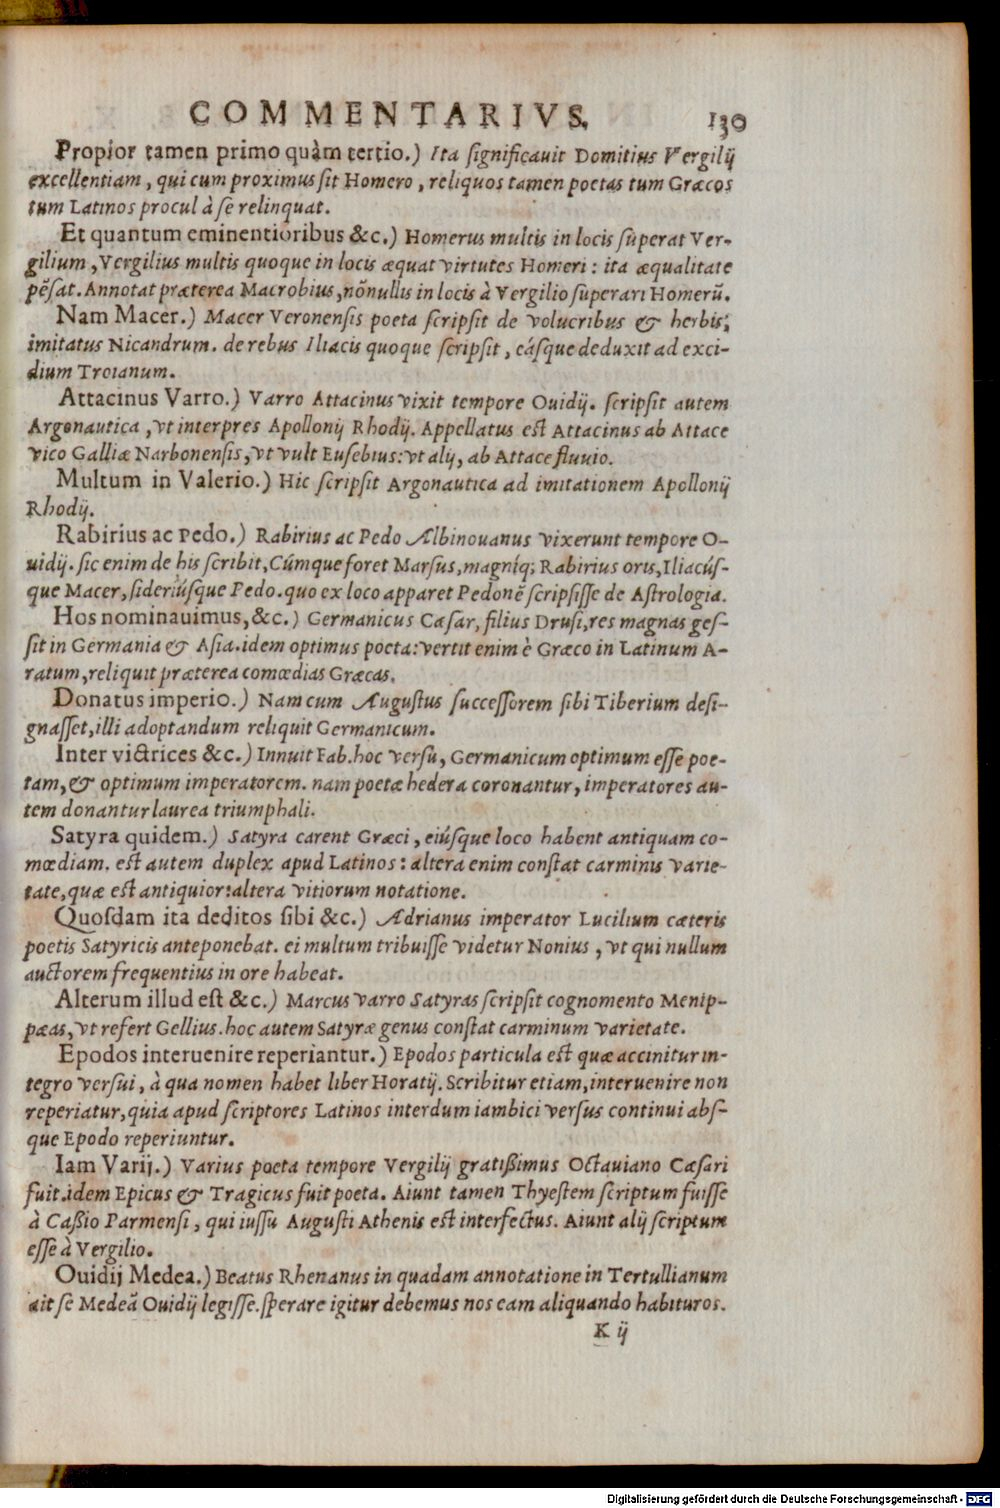 COMMENTARIVS. 130
Propior tamen primo quàm tertio.) Ita significauit Domitius Vergilij
excellentiam, qui cum proximus sit Homero, reliquos tamen poetas tum Græcos
tum Latinos procul à se relinquat.
Et quantum eminentioribus &c.) Homerus multis in locis superat Ver-
gilium, Vergilius multis quoque in locis æquat virtutes Homeri: ita æqualitate
pẽsat. Annotat præterea Macrobius, nõnullis in locis à Vergilio superari Homerũ.
Nam Macer.) Macer Veronensis poeta scripsit de volucribus & herbis,
imitatus Nicandrum. de rebus Iliacis quoque scripsit, eásque deduxit ad exci-
dium Troianum.
Attacinus Varro.) Varro Attacinus vixit tempore Ouidij. scripsit autem
Argonautica, vt interpres Apollonij Rhodij. Appellatus est Attacinus ab Attace
vico Galliæ Narbonensis, vt vult Eusebius: vt alij, ab Attace fluuio.
Multum in Valerio.) Hic scripsit Argonautica ad imitationem Apollonij
Rhodij.
Rabirius ac Pedo.) Rabirius ac Pedo Albinouanus vixerunt tempore O-
uidij. sic enim de his scribit, Cúmque foret Marsus, magníq; Rabirius oris, Iliacús-
que Macer, sideriúsque Pedo. quo ex loco apparet Pedonẽ scripsisse de Astrologia.
Hos nominauimus, &c.) Germanicus Cæsar, filius Drusi, res magnas ges-
sit in Germania & Asia. idem optimus poeta: vertit enim è Græco in Latinum A-
ratum, reliquit præterea comœdias Græcas.
Donatus imperio.) Nam cum Augustus successorem sibi Tiberium desi-
gnasset, illi adoptandum reliquit Germanicum.
Inter victrices &c.) Innuit Fab. hoc versu, Germanicum optimum esse poe-
tam, & optimum imperatorem. nam poetæ hedera coronantur, imperatores au-
tem donantur laurea triumphali.
Satyra quidem.) Satyra carent Græci, eiúsque loco habent antiquam co-
mœdiam. est autem duplex apud Latinos: altera enim constat carminis varie-
tate, quæ est antiquior: altera vitiorum notatione.
Quosdam ita deditos sibi &c.) Adrianus imperator Lucilium cæteris
poetis Satyricis anteponebat. ei multum tribuisse videtur Nonius, vt qui nullum
auctorem frequentius in ore habeat.
Alterum illud est &c.) Marcus varro Satyras scripsit cognomento Menip-
pæas, vt refert Gellius. hoc autem Satyræ genus constat carminum varietate.
Epodos interuenire reperiantur.) Epodos particula est quæ accinitur in-
tegro versui, à qua nomen habet liber Horatij. Scribitur etiam, interuenire non
reperiatur, quia apud scriptores Latinos interdum iambici versus continui abs-
que Epodo reperiuntur.
Iam Varij.) Varius poeta tempore Vergilij gratißimus Octauiano Cæsari
fuit. idem Epicus & Tragicus fuit poeta. Aiunt tamen Thyestem scriptum fuisse
à Caßio Parmensi, qui iussu Augusti Athenis est interfectus. Aiunt alij scriptum
esse à Vergilio.
Ouidij Medea.) Beatus Rhenanus in quadam annotatione in Tertullianum
ait se Medeã Ouidij legisse. sperare igitur debemus nos eam aliquando habituros.
K ij
Digitalisierung gefördert durch die Deutsche Forschungsgemeinschaft - DFG